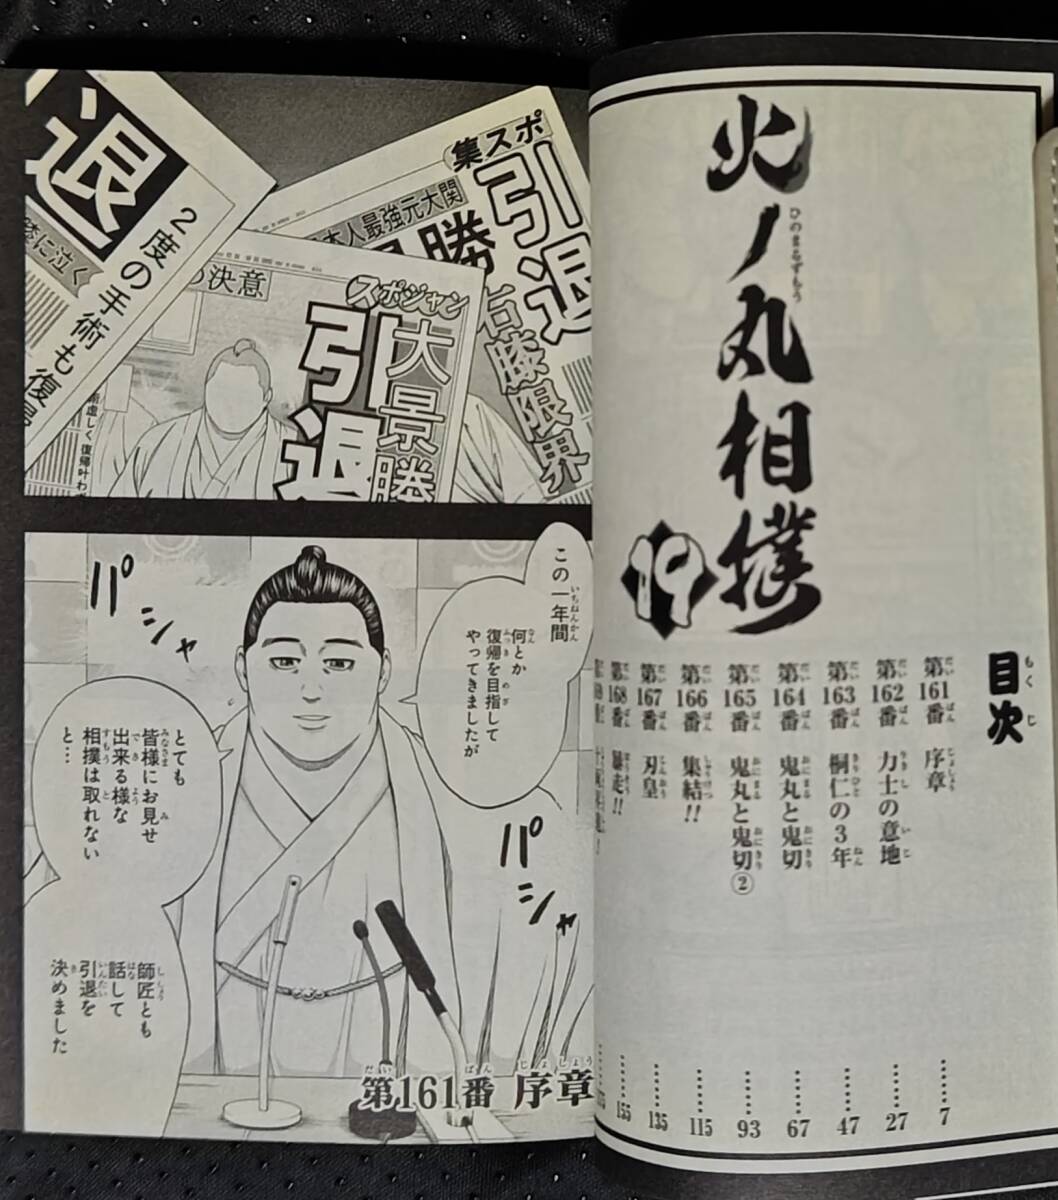 火ノ丸相撲
ひのまるずもう
19
目次
もくじ
第161番 序章 7
第162番 力士の意地 27
第163番 桐仁の3年 47
第164番 鬼丸と鬼切 67
第165番 鬼丸と鬼切② 93
第166番 集結!! 115
第167番 刃皇 135
第168番 暴走!! 155
集スポ
引退
本人最強元大関
勝
右膝限界
スポジャン
大景勝
引退
の決意
復帰叶わ
退
膝に泣く
2度の手術も復帰
この一年間
何とか
復帰を目指して
やってきましたが
パシャ
パシャ
とても
皆様にお見せ
出来る様な
相撲は取れない
と…
師匠とも
話して
引退を
決めました
第161番 序章